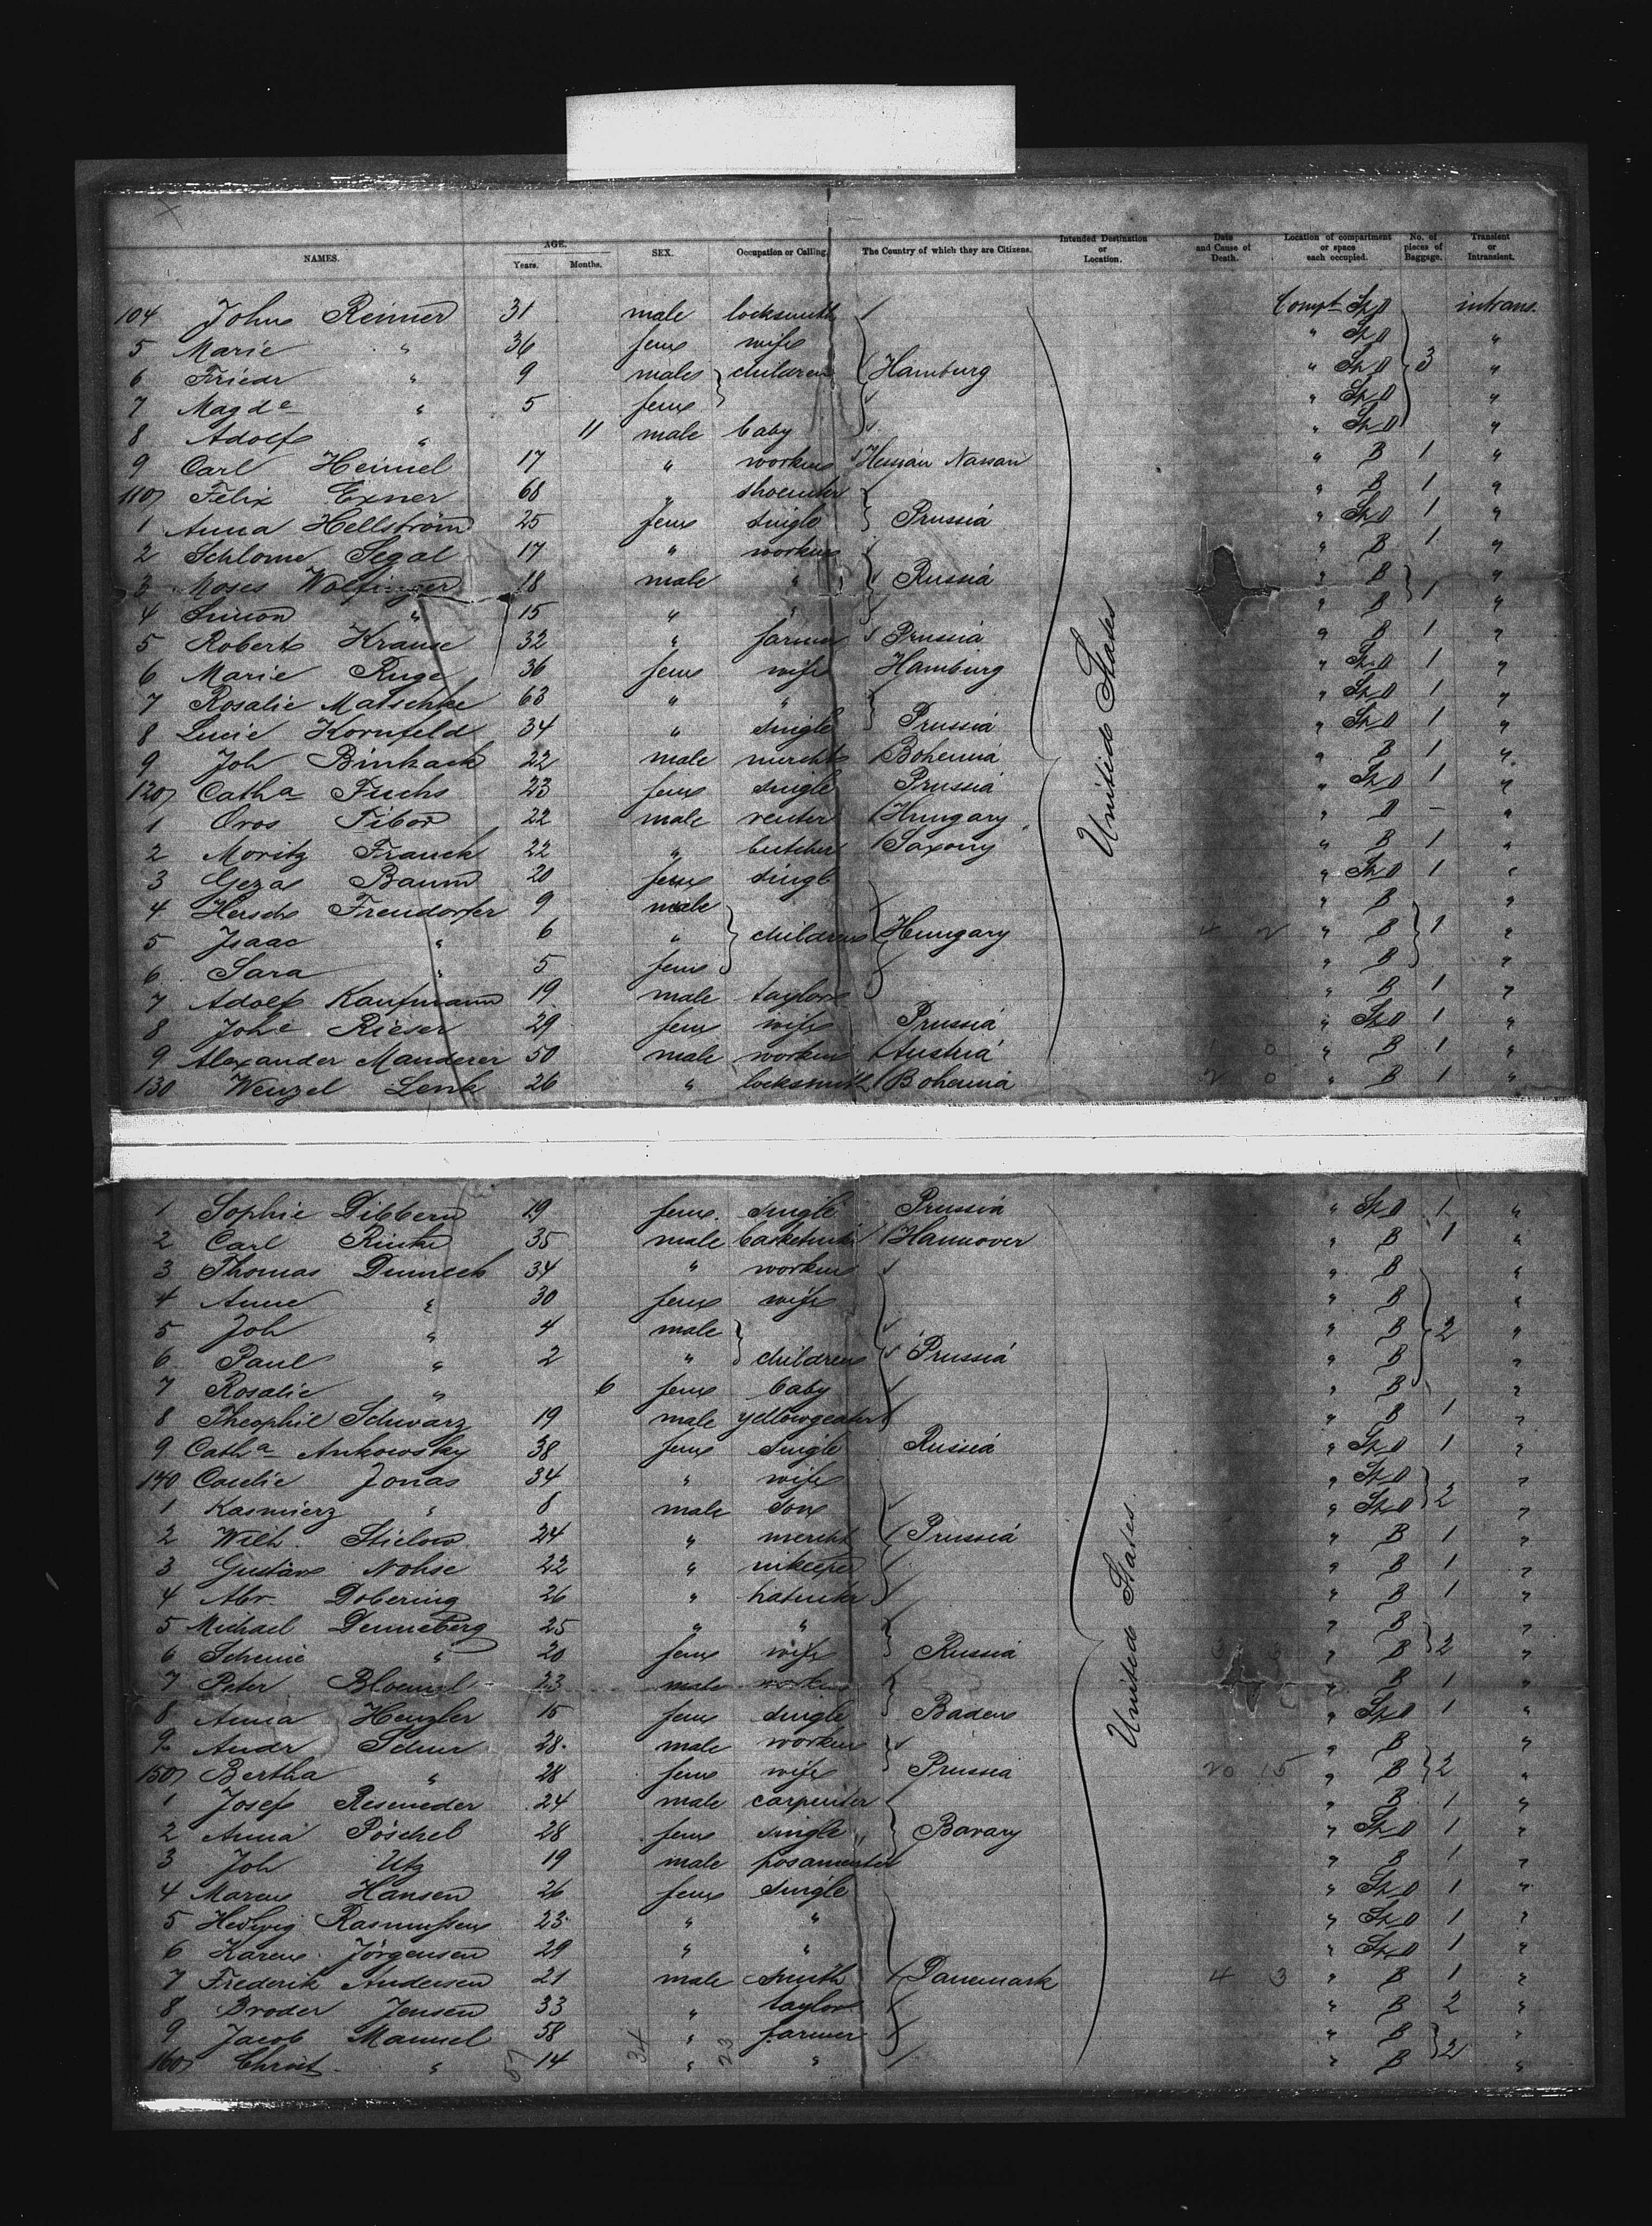 NAMES. AGE. Years. Months. SEX. Occupation or Calling. The Country of which they are Citizens. Intended Destination or Location. Date and Cause of Death. Location of compartment or space each occupied. No. of pieces of Baggage. Transient or Intransient.
104 Johns Reimer 31 male locksmith Compt StD intrans.
5 Marie " 36 fem wife " StD "
6 Friedr " 9 male children Hamburg " StD 3 "
7 Magde " 5 fem " StD "
8 Adolf " 11 male baby " StD "
9 Carl Heimel 17 " worker Hessian Nassau " B 1 "
110 Felix Exner 68 " " B 1 "
1 Anna Hellström 25 fem single Prussia " StD 1 "
2 Schlome Segal 17 " worker " B 1 "
3 Moses Wolfinger 18 male " Russia " B 1 "
4 Simon " 15 " " " B "
5 Robert Krause 32 " farmer Prussia " B 1 "
6 Marie Ruge 36 fem wife Hamburg " StD 1 "
7 Rosalie Matschke 63 " " " StD 1 "
8 Lucie Kornfeld 34 " single Prussia " StD 1 "
9 Joh Binhack 22 male mercht Bohemia " B 1 "
120 Catha Fuchs 23 fem single Prussia " StD 1 "
1 Oros Tibor 22 male renter Hungary " D – "
2 Moritz Franck 22 " butcher Saxony " B 1 "
3 Geza Baum 20 fem single " StD 1 "
4 Hersch Freudorfer 9 male " B "
5 Isaac " 6 " children Hungary 4 2 " B 1 "
6 Sara " 5 fem " B "
7 Adolf Kaufmann 19 male taylor " B 1 "
8 Johe Rieser 29 fem wife Prussia " StD 1 "
9 Alexander Manderer 50 male worker Austria 1 0 " B 1 "
130 Wenzel Lenk 26 " locksmith Bohemia 2 0 " B 1 "
United States
1 Sophie Dibbern 19 fem. single Prussia " StD 1 "
2 Carl Rinke 35 male Hannover " B 1 "
3 Thomas 34 " worker " B "
4 Anne " 30 fem wife " B "
5 Joh " 4 male " B 2 "
6 Paul " 2 " children Prussia " B "
7 Rosalie " 6 fem baby " B "
8 Theophil Schwarz 19 male " B 1 "
9 Catha Ankowsky 38 fem single Russia " StD 1 "
140 Jonas 34 " wife " StD "
1 Kasmierz " 8 male son " StD 2 "
2 Wilh. Stielow 24 " mercht Prussia " B 1 "
3 Gustav Nohse 22 " inkeeper " B 1 "
4 Abr Dobering 26 " hatmkr " B 1 "
5 Michael Denneberg 25 " " " B "
6 " 20 fem wife Russia " B 2 "
7 Peter 23 male worker " B 1 "
8 Anna Henzler 15 fem single Baden " StD 1 "
9 Andr Schur 28 male worker " B "
150 Bertha " 28 fem wife Prussia 20 15 " B 2 "
1 Josef Reseneder 24 male carpenter " B 1 "
2 Anna Pöschel 28 fem single Bavary " StD 1 "
3 Joh Utz 19 male posamentier " B 1 "
4 Maren Hansen 26 fem single " StD 1 "
5 Hedwig Rasmussen 23 " " " StD 1 "
6 Karen Jörgensen 29 " " " StD 1 "
7 Frederik Andersen 21 male smith Danemark 4 3 " B 1 "
8 Broder Jensen 33 " taylor " B 2 "
9 Jacob Manuel 58 " farmer " B 2 "
160 Christ " 14 " " " B "
United States
57 34 23